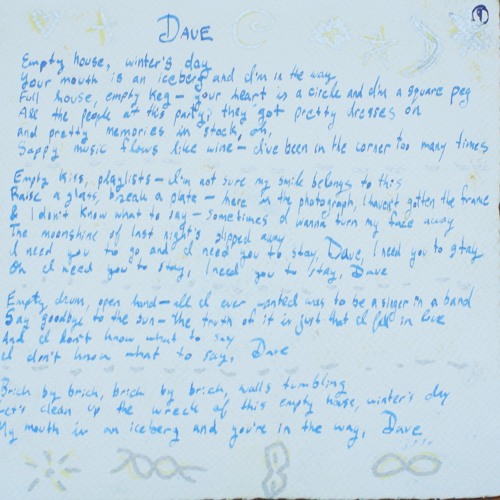 9
Dave
Empty house, winter's day
Your mouth is an iceberg and I'm in the way
Full house, empty keg – your heart is a circle and I'm a square peg
All the people at this party, they got pretty dresses on
and pretty memories in stock, oh,
Sappy music flows like wine – I've been in the corner too many times
Empty kiss, playlists – I'm not sure my smile belongs to this
Raise a glass, break a plate – here in the photograph, I haven't gotten the frame
& I don't know what to say – sometimes I wanna turn my face away
The moonshine of last night's slipped away
I need you to go and I need you to stay, Dave, I need you to stay
Oh I need you to stay, I need you to stay, Dave
Empty drum, open hand – all I ever wanted was to be a singer in a band
Say goodbye to the sun – the truth of it is just that I fell in love
And I don't know what to say
I don't know what to say, Dave
Brick by brick, brick by brick, walls tumbling
Let's clean up the wreck of this empty house, winter's day
My mouth is an iceberg and you're in the way, Dave